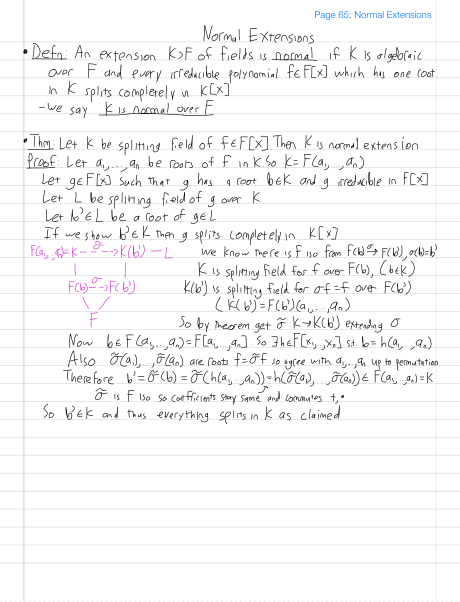 Page 65: Normal Extensions
Normal Extensions
• Defn: An extension K>F of fields is normal if K is algebraic
over F and every irreducible polynomial f∈F[x] which has one root
in K splits completely in K[x]
- We say K is normal over F
• Thm: Let K be splitting field of f∈F[x] Then K is normal extension
Proof: Let a₁,...,aₙ be roots of F in K. So K=F(a₁,...,aₙ)
Let g∈F[x] such that g has a root b∈K and g irreducible in F[x]
Let L be splitting field of g over K.
Let b'∈L be a root of g∈L.
If we show b'∈K then g splits completely in K[x]
F(a₁,...,aₙ)=K - σ̃ -> K(b') - L
we know there is F iso from F(b) σ→ F(b'), σ(b)=b'
K is splitting field for f over F(b), (b∈K)
F(b) -σ-> F(b')
K(b') is splitting field for σf=f over F(b')
(K(b')=F(b')(a₁,...,aₙ)
F
So by theorem get σ̃ K→K(b') extending σ
Now b∈F(a₁,...,aₙ)=F[a₁,...,aₙ]. So ∃h∈F[x₁,...,xₙ] st. b=h(a₁,...,aₙ)
Also σ̃(a₁),...,σ̃(aₙ) are roots f=σ̃f so agree with a₁,...,aₙ up to permutation
Therefore b'=σ̃(b)=σ̃(h(a₁,...,aₙ))=h(σ̃(a₁),...,σ̃(aₙ))∈F(a₁,...,aₙ)=K
σ̃ is F iso so coefficients stay same and commutes +,•
So b'∈K and thus everything splits in K as claimed